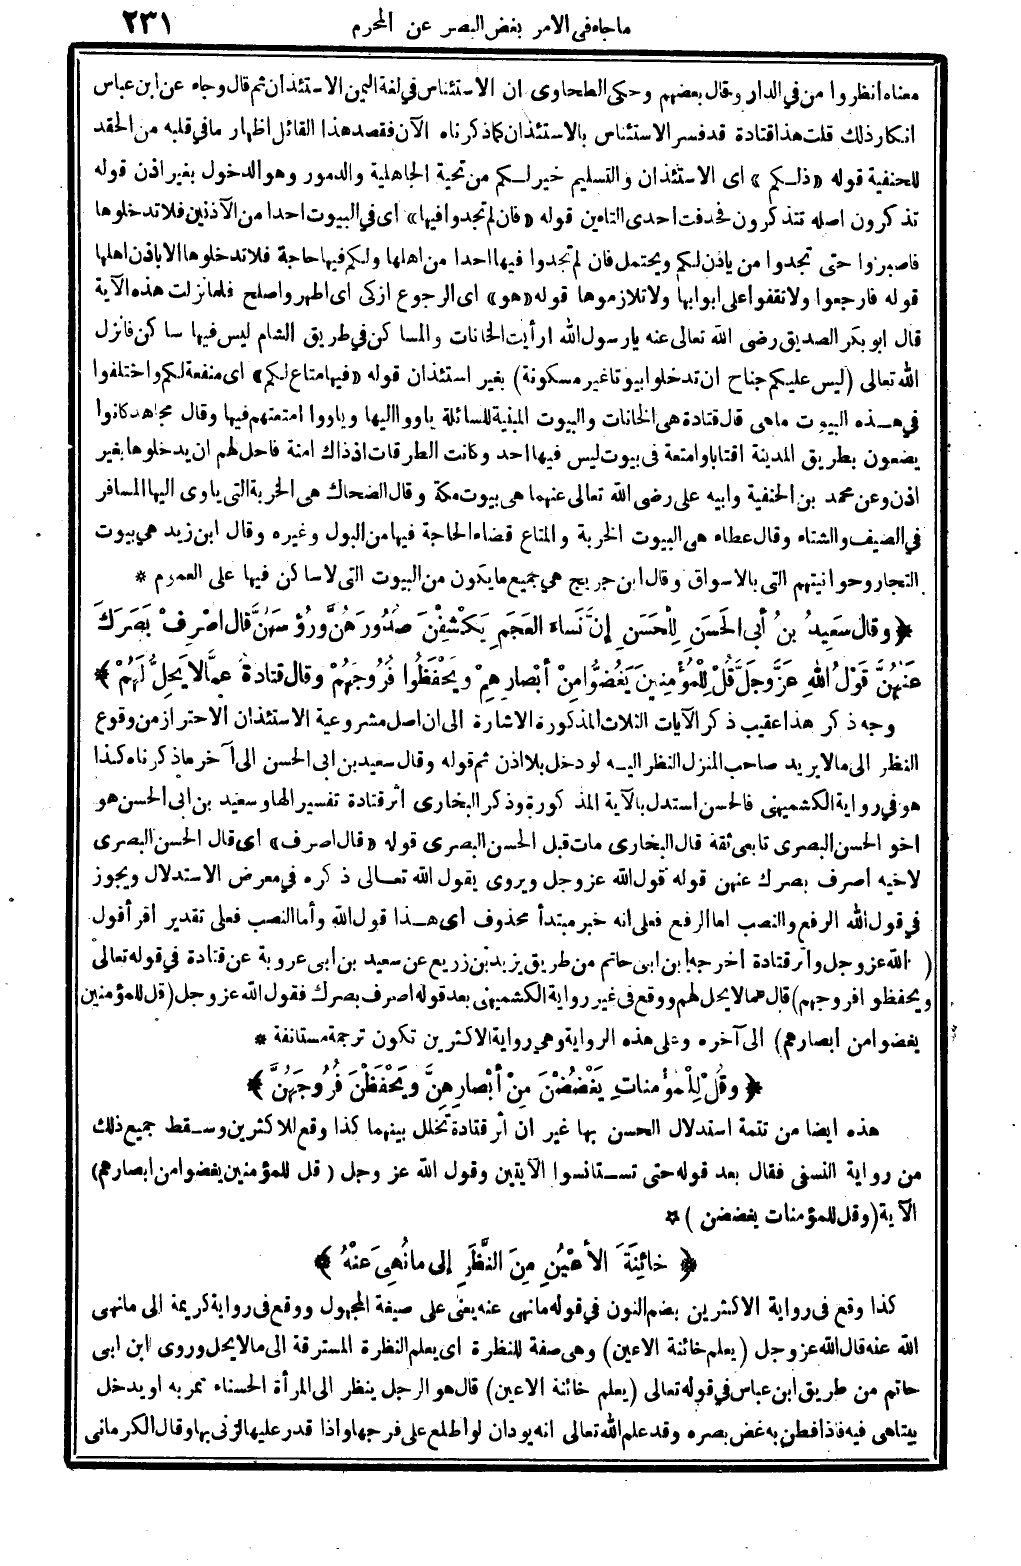 ماجاء في الامر بغض البصر عن المحرم ٢٣١
معناه انظروا من في الدار وقال بعضهم وحكى الطحاوى ان الاستئناس في لغة اليمن الاستئذان ثم قال وجاء عن ابن عباس
انكار ذلك قلت هذا قتادة قد فسر الاستئناس بالاستئذان كما ذكرناه الآن فقصد هذا القائل اظهار مافي قلبه من الحقد
للحنفية قوله «ذلكم» اى الاستئذان والتسليم خير لكم من تحية الجاهلية والدمور وهو الدخول بغير اذن قوله
تذكرون اصله تتذكرون فحذفت احدى التاءين قوله «فان لم تجدوا فيها» اى في البيوت احدا من الآذنين فلا تدخلوها
فاصبروا حتى تجدوا من ياذن لكم ويحتمل فان لم تجدوا فيها احدا من اهلها ولكم فيها حاجة فلا تدخلوها الا باذن اهلها
قوله فارجعوا ولا تقفوا على ابوابها ولا تلازموها قوله «هو» اى الرجوع ازكى اى اطهر واصلح فلما نزلت هذه الآية
قال ابو بكر الصديق رضى الله تعالى عنه يارسول الله ارأيت الخانات والمساكن في طريق الشام ليس فيها ساكن فانزل
الله تعالى (ليس عليكم جناح ان تدخلوا بيوتا غير مسكونة) بغير استئذان قوله «فيها متاع لكم» اى منفعة لكم واختلفوا
في هذه البيوت ماهى قال قتادة هى الخانات والبيوت المبنية للسائلة ياووا اليها وياووا امتعتهم فيها وقال مجاهد كانوا
يضعون بطريق المدينة اقتابا وامتعة فى بيوت ليس فيها احد وكانت الطرقات اذ ذاك امنة فاحل لهم ان يدخلوها بغير
اذن وعن محمد بن الحنفية وابيه على رضى الله تعالى عنهما هى بيوت مكة وقال الضحاك هى الخربة التى ياوى اليها المسافر
في الصيف والشتاء وقال عطاء هى البيوت الخربة والمتاع قضاء الحاجة فيها من البول وغيره وقال ابن زيد هي بيوت
التجار وحوانيتهم التى بالاسواق وقال ابن جريج هي جميع مايكون من البيوت التى لا ساكن فيها على العموم *
﴿ وقال سَعِيدُ بنُ أبى الحَسَنِ لِلْحَسَنِ إنَّ نَساءَ العَجَمِ يَكْشِفْنَ صُدُورَهُنَّ ورُؤسَهُنَّ قال اصْرِفْ بَصَرَكَ
عَنْهُنَّ قَوْلُ اللهِ عَزَّ وجلَّ قُلْ لِلْمُؤْمِنِينَ يَغُضُّوا مِنْ أبْصارِهِمْ ويَحْفَظُوا فُرُوجَهُمْ وقال قتادةُ عمَّا لا يَحِلُّ لَهُمْ ﴾
وجه ذكر هذا عقيب ذكر الآيات الثلاث المذكورة الاشارة الى ان اصل مشروعية الاستئذان الاحتراز من وقوع
النظر الى مالا يريد صاحب المنزل النظر اليه لو دخل بلا اذن ثم قوله وقال سعيد بن ابى الحسن الى آخر ماذكرناه كذا
هو في رواية الكشميهنى فالحسن استدل بالآية المذكورة وذكر البخارى أثر قتادة تفسيرا لها وسعيد بن ابى الحسن هو
اخو الحسن البصرى تابعى ثقة قال البخارى مات قبل الحسن البصرى قوله «قال اصرف» اى قال الحسن البصرى
لاخيه اصرف بصرك عنهن قوله قول الله عز وجل ويروى يقول الله تعالى ذكره في معرض الاستدلال ويجوز
في قول الله الرفع والنصب اما الرفع فعلى انه خبر مبتدأ محذوف اى هذا قول الله وأما النصب فعلى تقدير اقرأ قول
( الله عز وجل وأثر قتادة اخرجه ابن ابى حاتم من طريق يزيد بن زريع عن سعيد بن ابى عروبة عن قتادة في قوله تعالى
ويحفظوا فروجهم) قال عما لا يحل لهم ووقع فى غير رواية الكشميهنى بعد قوله اصرف بصرك فقول الله عز وجل (قل للمؤمنين
يغضوا من ابصارهم) الى آخره وعلى هذه الرواية وهي رواية الاكثرين تكون ترجمة مستانفة *
﴿ وقُلْ لِلْمُؤْمناتِ يَغْضُضْنَ مِنْ أبْصارِهِنَّ ويَحْفَظْنَ فُرُوجَهُنَّ ﴾
هذه ايضا من تتمة استدلال الحسن بها غير ان أثر قتادة تخلل بينهما كذا وقع للاكثرين وسقط جميع ذلك
من رواية النسفى فقال بعد قوله حتى تستانسوا الآيتين وقول الله عز وجل (قل للمؤمنين يغضوا من ابصارهم)
الآية (وقل للمؤمنات يغضضن) *
﴿ خائِنَةَ الأعْيُنِ مِنَ النَّظَرِ إلى مانُهِىَ عَنْهُ ﴾
كذا وقع فى رواية الاكثرين بضم النون في قوله مانهى عنه يعنى على صيغة المجهول ووقع فى رواية كريمة الى مانهى
الله عنه قال الله عز وجل (يعلم خائنة الاعين) وهى صفة للنظرة اى يعلم النظرة المسترقة الى مالا يحل وروى ابن ابى
حاتم من طريق ابن عباس في قوله تعالى (يعلم خائنة الاعين) قال هو الرجل ينظر الى المرأة الحسناء تمر به او يدخل
بيتا هى فيه فاذا فطن به غض بصره وقد علم الله تعالى انه يود ان لو اطلع على فرجها واذا قدر عليها لزنى بها وقال الكرمانى